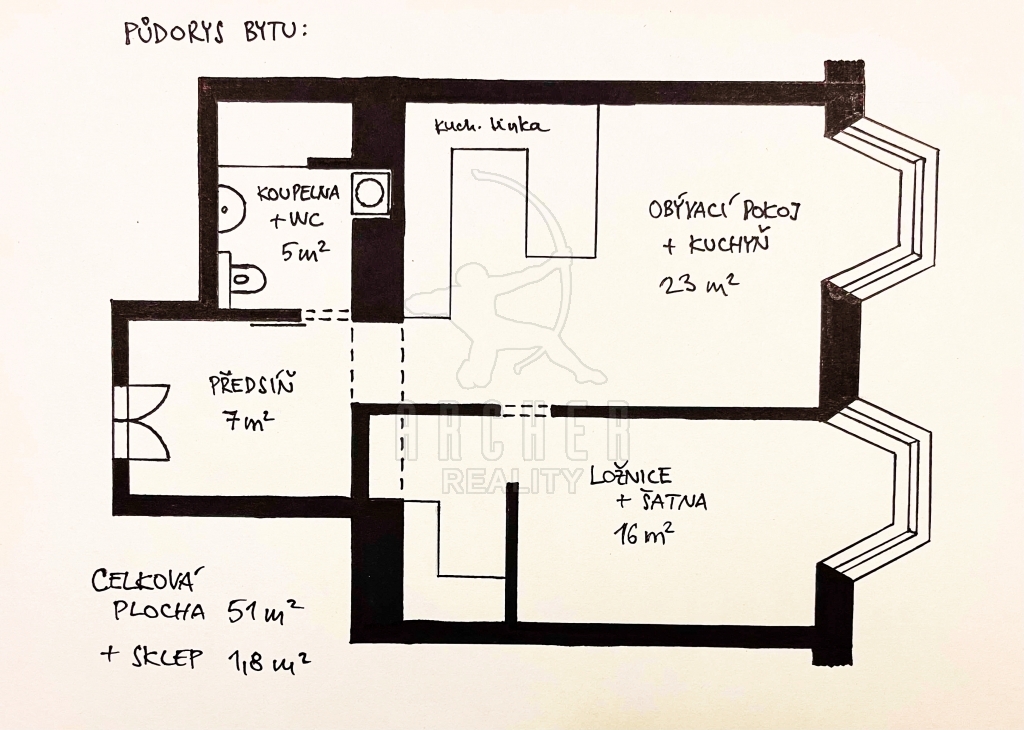 PŮDORYS BYTU:
kuch. linka
KOUPELNA
+ WC
5 m²
OBÝVACÍ POKOJ
+ KUCHYŇ
23 m²
PŘEDSÍŇ
7 m²
ARCHER
REALITY
LOŽNICE
+ ŠATNA
16 m²
CELKOVÁ
PLOCHA 51 m²
+ SKLEP 1,8 m²